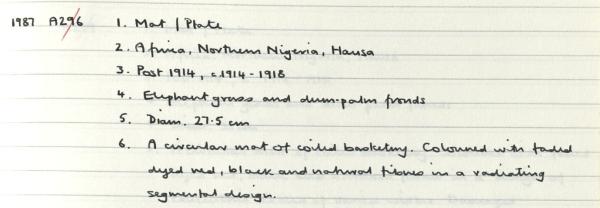 1987 A296 1. Mat / Plate
2. Africa, Northern Nigeria, Hausa
3. Post 1914, c1914-1918
4. Elephant grass and dum-palm fronds
5. Diam. 27.5 cm
6. A circular mat of coiled basketry. Coloured with faded
dyed red, black and natural fibres in a radiating
segmental design.